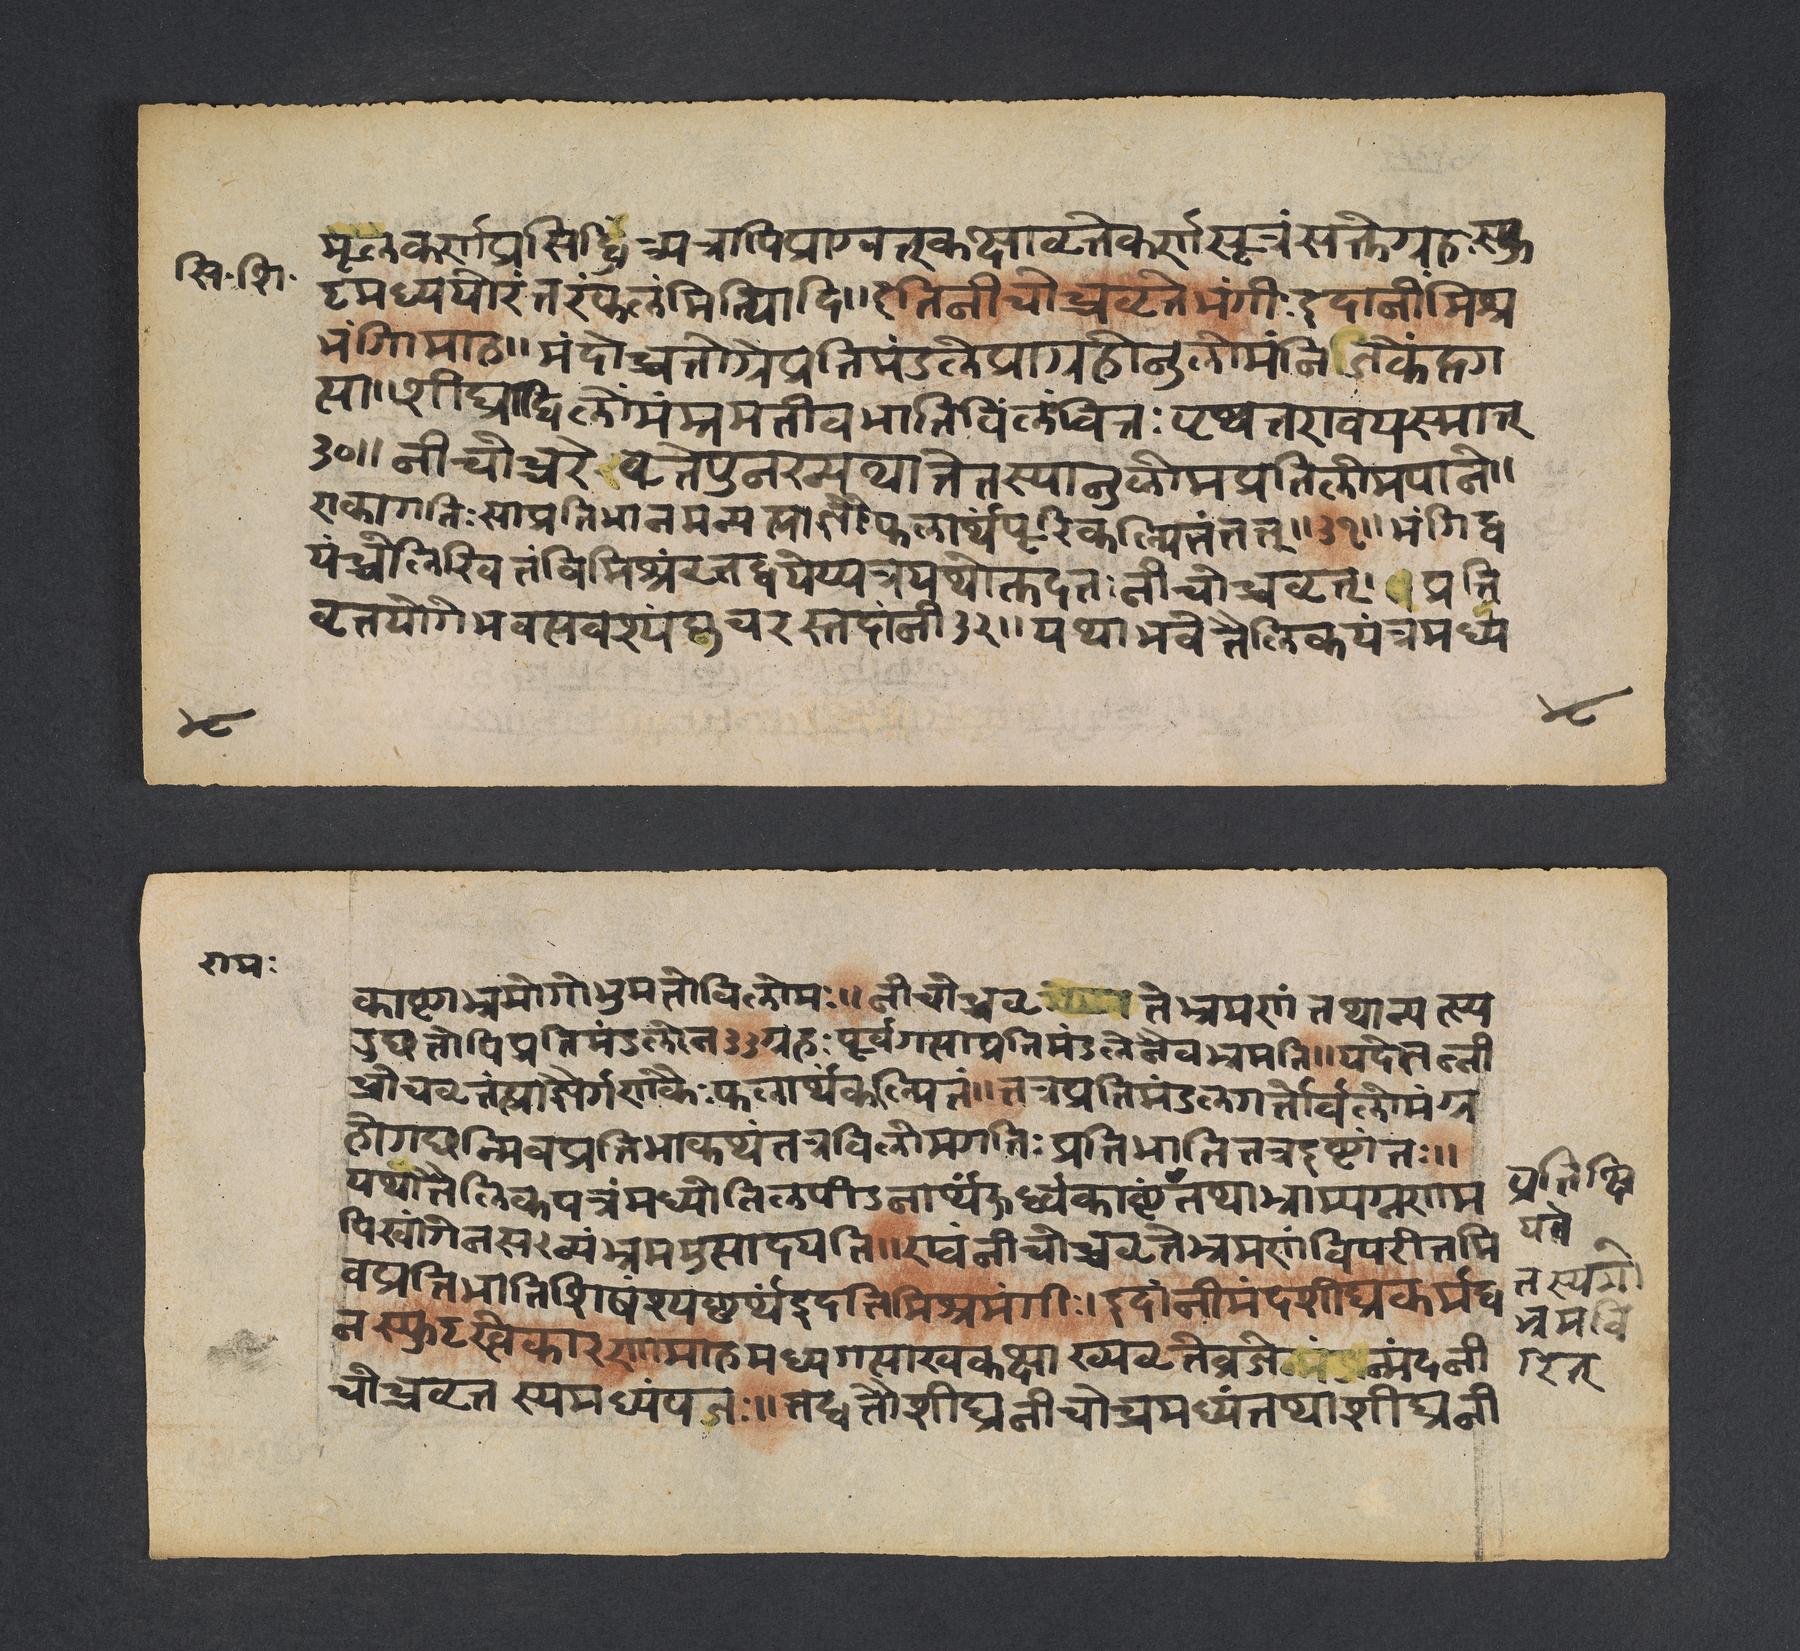 सि·शि·
मृतकर्णप्रसिद्धि अत्रापि प्राग्वत्कक्षावृत्ते कर्णसूत्रं सक्ते ग्रहस्फु
टमध्ययोरंतरंफलंमित्यादि॥ इतिनीचोच्चवृत्तेभंगीः इदानींमिश्र
भंगिामाह॥ मंदोच्चतोग्रेप्रतिमंडलेप्राग्रहोनुलोमंनिजकेंद्रग
त्या॥शीघ्राद्विलोमंभ्रमतीवभातिविलंबितः पृष्ठतरावयस्मात्
३०॥ नीचोच्चरे वृत्तेपुनरन्यथातेतस्यानुलोमप्रतिलोमपाने॥
एकागतिः साप्रतिभानमन्यत्प्राज्ञैः फलार्थंपरिकल्पितंतत्॥ ३१॥ भंगिद्व
यंच्चेलिखितंविमिश्रंवृत्तद्वयेप्यत्रयथोक्तदत्तः नीचोच्चवृत्त। प्रति
वृत्तयोगेभवत्यवश्यंद्युचरस्तदांनी ३२॥ यथाभवेत्तैलिकयंत्रमध्य
४८
४८
रामः
काष्टाभ्रमोगोभ्रुमतोविलोमः॥ नीचोच्चवृ त्तेभ्रमणं तथान्यत्स्य
द्गच्छतोपिप्रतिमंडलेन३३ ग्रहः पूर्वगत्याप्रतिमंडलेनैवभ्रमति॥ यदेतन्नी
चोच्चवृत्तंप्राज्ञैर्गणकैः फलार्थंकल्पितं॥ तत्रप्रतिमंडलगतेर्विलोमंग्र
होगच्छन्निवप्रतिभाकथंतत्रविलोमगतिः प्रतिभातितत्रदृष्टांतः॥
यथातैलिकयत्रंमध्येतिलपीडनार्थंऊर्ध्वंकाष्ठंतथाभ्राम्यग्नणाम
पिखांगेनसव्यंभ्रममुत्सादयति॥ एवंनीचोच्चवृत्तेभ्रमणंविपरीतमि
वप्रतिभातिशिषंश्यष्टार्थं इदतिमिश्रमंगीः। इदांनीमंदशीघ्रकर्मद्व
नस्फुटत्वैकारणमाहमध्यगत्यास्वकक्षाख्यवृत्तेव्रजे न्मंदनी
चोच्चवृत्तस्यमध्यंयतः॥ तद्वृत्तौशीघ्रनीचोच्चमध्यंतथाशीघ्रनी
प्रतिक्षि
पते
तस्यगो
भ्रमवि
हित्